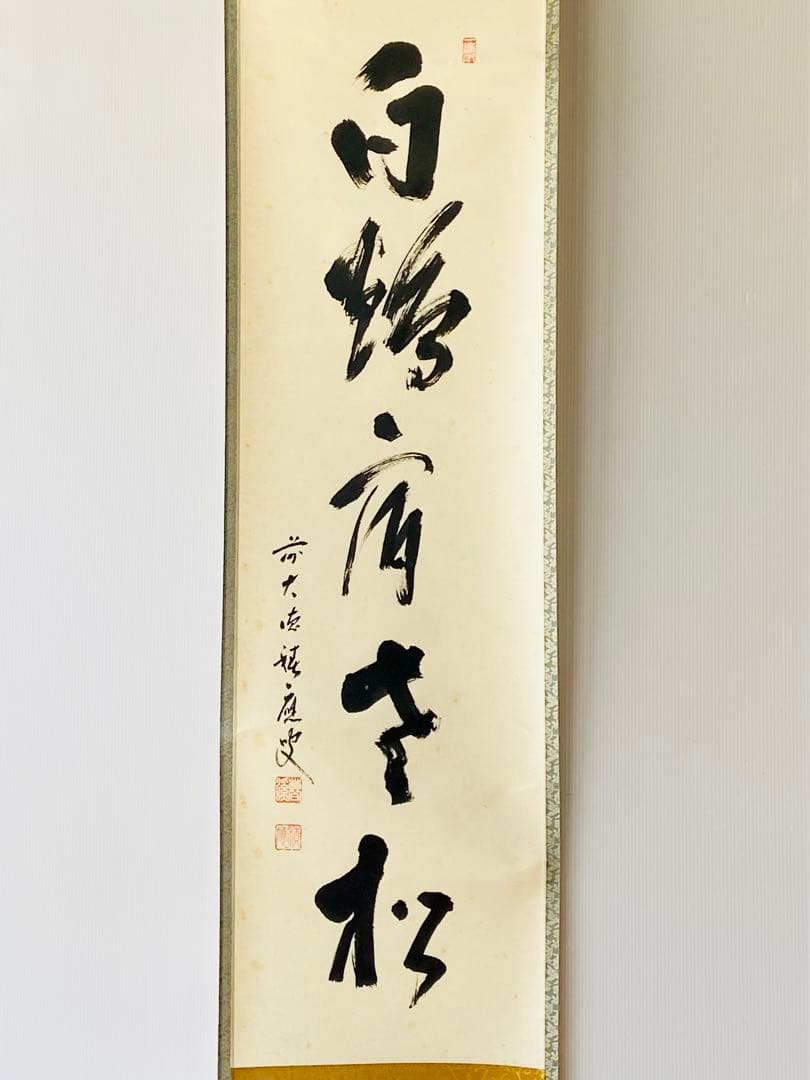 白鶴宿老松
前大徳積應叟